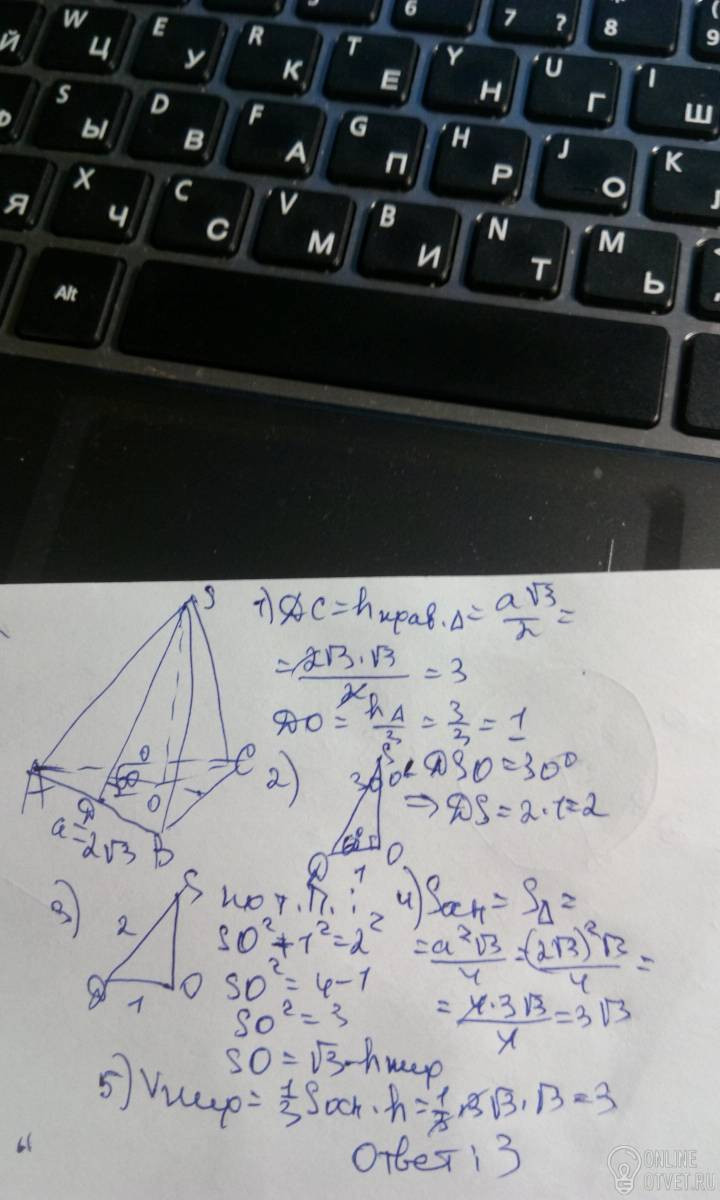 6
7 ?
8
9
Й
W Ц
E У
R К
T Е
Y Н
U Г
I Ш
Ф
S Ы
D В
F А
G П
H Р
J О
K
Я
X Ч
C С
V М
B И
N Т
M Ь
Alt
S
A
D
O
C
B
a = 2√3
1) DC = h прав.Δ = a√3/2 =
= 2√3·√3/2 = 3
DO = hΔ/3 = 3/3 = 1
2)
S
30°
60°
D
O
1
∠DSO = 30°
⇒ DS = 2·1 = 2
3)
S
2
D
1
O
по т. П.:
SO² + 1² = 2²
SO² = 4 - 1
SO² = 3
SO = √3 - h пир
4) Sосн = SΔ =
= a²√3/4 = (2√3)²√3/4 =
= 4·3√3/4 = 3√3
5) Vпир = 1/3 Sосн·h = 1/3·3√3·√3 = 3
Ответ: 3
ONLINE
OTVET.RU